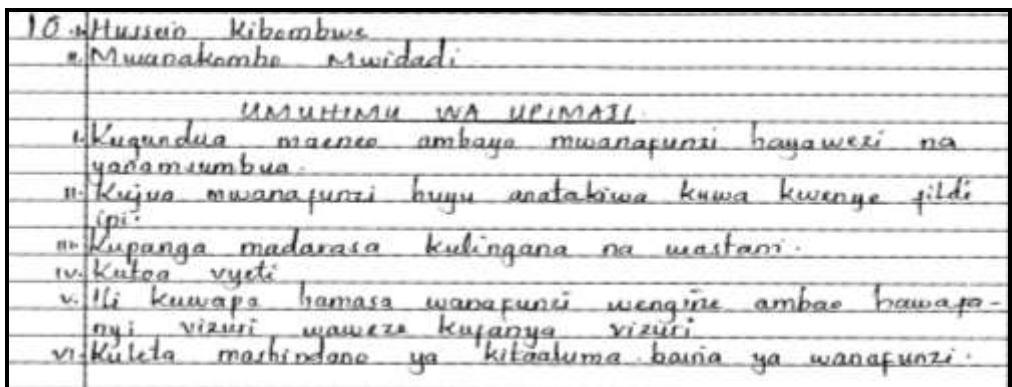 10. i. Hussein Kibombwe
ii. Mwanakombo Mwidadi
UMUHIMU WA UPIMAJI.
i. Kugundua maeneo ambayo mwanafunzi hayawezi na
yanamsumbua.
ii. Kujua mwanafunzi huyu anatakiwa kuwa kwenye fildi
ipi.
iii. Kupanga madarasa kulingana na wastani.
iv. Kutoa vyeti
v. Ili kuwapa hamasa wanafunzi wengine ambao hawafa-
nyi vizuri waweze kufanya vizuri
vi. Kuleta mashindano ya kitaaluma baina ya wanafunzi.